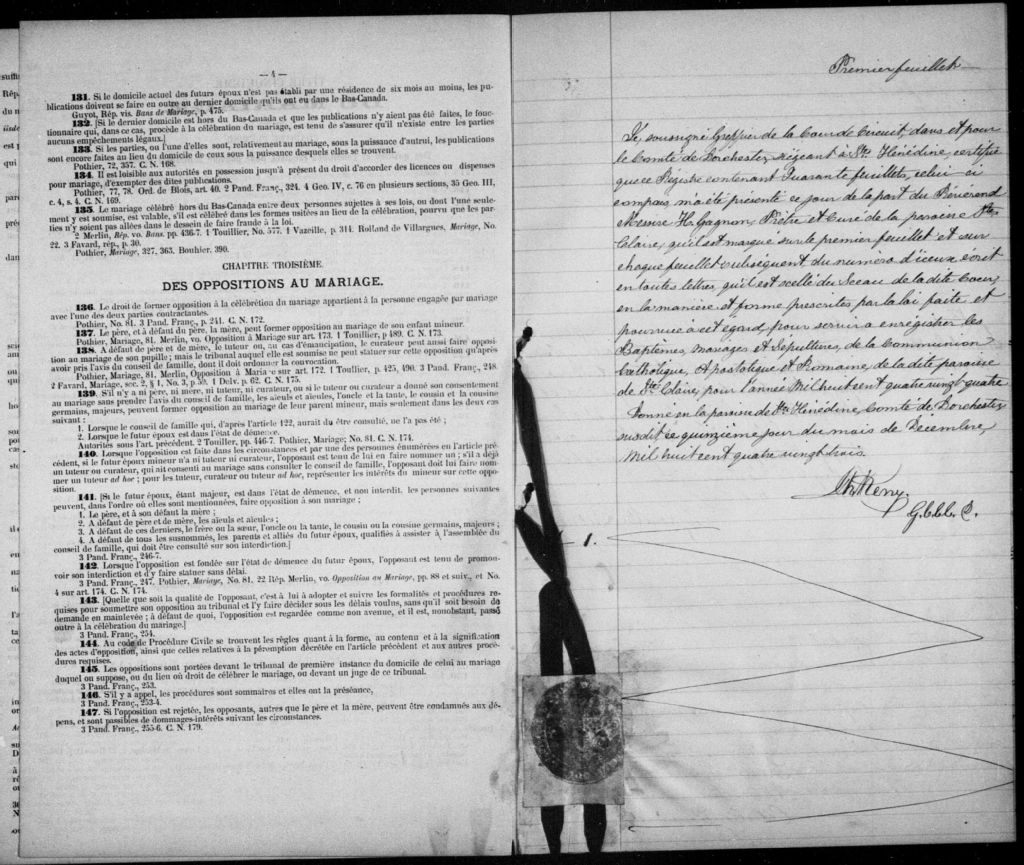 — 4 —
131. Si le domicile actuel des futurs époux n'est pas établi par une résidence de six mois au moins, les pu-
blications doivent se faire en outre au dernier domicile qu'ils ont eu dans le Bas-Canada.
Guyot, Rép. vis. Bans de Mariage, p. 475.
132. [Si le dernier domicile est hors du Bas-Canada et que les publications n'y aient pas été faites, le fonc-
tionnaire qui, dans ce cas, procède à la célébration du mariage, est tenu de s'assurer qu'il n'existe entre les parties
aucuns empêchements légaux.]
133. Si les parties, ou l'une d'elles sont, relativement au mariage, sous la puissance d'autrui, les publications
sont encore faites au lieu du domicile de ceux sous la puissance desquels elles se trouvent.
Pothier, 72, 357. C. N. 168.
134. Il est loisible aux autorités en possession jusqu'à présent du droit d'accorder des licences ou dispenses
pour mariage, d'exempter des dites publications.
Pothier, 77, 78. Ord. de Blois, art. 40. 2 Pand. Franç., 324. 4 Geo. IV, c. 76 en plusieurs sections, 35 Geo. III,
c. 4, s. 4. C. N. 169.
135. Le mariage célébré hors du Bas-Canada entre deux personnes sujettes à ses lois, ou dont l'une seule-
ment y est soumise, est valable, s'il est célébré dans les formes usitées au lieu de la célébration, pourvu que les par-
ties n'y soient pas allées dans le dessein de faire fraude à la loi.
2 Merlin, Rép. vo. Bans. pp. 436-7. 1 Touillier, No. 577. 1 Vazeille, p. 314. Rolland de Villargues, Mariage, No.
22. 3 Favard, rép., p. 30.
Pothier, Mariage, 327, 363. Bouhier. 390.
CHAPITRE TROISIÈME.
DES OPPOSITIONS AU MARIAGE.
136. Le droit de former opposition à la célébrétion du mariage appartient à la personne engagée par mariage
avec l'une des deux parties contractantes.
Pothier, No. 81. 3 Pand. Franç., p. 241. C. N. 172.
137. Le père, et à défaut du père, la mère, peut former opposition au mariage de son enfant mineur.
Pothier, Mariage, 81. Merlin, vo. Opposition à Mariage sur art. 173. 1 Tonillier, p 489. C. N. 173.
138. A défaut de père et de mère, le tuteur ou, au cas d'émancipation, le curateur peut aussi faire opposi-
tion au mariage de son pupille ; mais le tribunal auquel elle est soumise ne peut statuer sur cette opposition qu'après
avoir pris l'avis du conseil de famille, dont il doit ordonner la convocation.
Pothier, Mariage, 81. Merlin, Opposition à Maria e sur art. 172. 1 Toullier, p. 425, 490. 3 Pand. Franç., 248.
2 Favard, Mariage, sec. 2, § 1, No. 3, p 59. 1 Delv. p. 62. C. N. 175.
139. S'il n'y a ni père, ni mère, ni tuteur, ni curateur, ou si le tuteur ou curateur a donné son consentement
au mariage sans prendre l'avis du conseil de famille, les aïeuls et aïeules, l'oncle et la tante, le cousin et la cousine
germains, majeurs, peuvent former opposition au mariage de leur parent mineur, mais seulement dans les deux cas
suivant :
1. Lorsque le conseil de famille qui, d'après l'article 122, aurait du être consulté, ne l'a pas été ;
2. Lorsque le futur époux est dans l'état de démence.
Autorités sous l'art. précédent. 2 Touiller, pp. 446-7. Pothier, Mariage; No. 81. C. N. 174.
140. Lorsque l'opposition est faite dans les circonstances et par une des personnes énumérées en l'article pré-
cédent, si le futur époux mineur n'a ni tuteur ni curateur, l'opposant est tenu de lui en faire nommer un ; s'il a déjà
un tuteur ou curateur, qui ait consenti au mariage sans consulter le conseil de famille, l'opposant doit lui faire nom-
mer un tuteur ad hoc ; pour les tuteur, curateur ou tuteur ad hoc, représenter les intérêts du mineur sur cette oppo-
sition.
141. [Si le futur époux, étant majeur, est dans l'état de démence, et non interdit. les personnes suivantes
peuvent, dans l'ordre où elles sont mentionnées, faire opposition à son mariage ;
1. Le père, et à son défaut la mère ;
2. A défaut de père et de mère, les aïeuls et aïeules ;
3. A défaut de ces derniers, le frère ou la sœur, l'oncle ou la tante, le cousin ou la cousine germains, majeurs ;
4. A défaut de tous les susnommés, les parents et alliés du futur époux, qualifiés à assister à l'assemblée du
conseil de famille, qui doit être consulté sur son interdiction.]
3 Pand. Franç., 246-7.
142. Lorsque l'opposition est fondée sur l'état de démence du futur époux, l'opposant est tenu de promou-
voir son interdiction et d'y faire statuer sans délai.
3 Pand. Franç., 247. Pothier, Mariage, No. 81. 22 Rép. Merlin, vo. Opposition au Mariage, pp. 88 et suiv., et No.
4 sur art. 174. C. N. 174.
143. [Quelle que soit la qualité de l'opposant, c'est à lui à adopter et suivre les formalités et procédures re-
quises pour soumettre son opposition au tribunal et l'y faire décider sous les délais voulus, sans qu'il soit besoin de
demande en mainlevée ; à défaut de quoi, l'opposition est regardée comme non avenue, et il est, nonobstant, passé
outre à la célébration du mariage.]
3 Pand. Franç., 254.
144. Au code de Procédure Civile se trouvent les règles quant à la forme, au contenu et à la signification
des actes d'opposition, ainsi que celles relatives à la péremption décrétée en l'article précédent et aux autres procé-
dures requises.
145. Les oppositions sont portées devant le tribunal de première instance du domicile de celui au mariage
duquel on suppose, ou du lieu où droit de célébrer le mariage, ou devant un juge de ce tribunal.
3 Pand. Franç., 253.
146. S'il y a appel, les procédures sont sommaires et elles ont la préséance,
3 Pand. Franç., 253-4.
147. Si l'opposition est rejetée, les opposants, autres que le père et la mère, peuvent être condamnés aux dé-
pens, et sont passibles de dommages-intérêts suivant les circonstances.
3 Pand. Franç., 255-6. C. N. 179.
Premier feuillet
Je, soussigné Greffier de la Cour de Circuit, dans et pour
le Comté de Dorchester, siégeant à Ste Hénédine, certifie
que ce Régistre contenant Quarante feuillets, celui-ci
compris, m'a été présenté ce jour de la part du Révérend
Messire H. Gagnon, Prêtre et Curé de la paroisse Ste
Claire, qu'il est marqué sur le premier feuillet et sur
chaque feuillet subséquent du numéro d'iceux écrit
en toutes lettres, qu'il est scellé du Sceau de la dite Cour,
en la manière et forme prescrites par la loi faite et
pourvue à cet égard, pour servir à enrégistrer les
Baptêmes, Mariages et Sépultures, de la Communion
Catholique, Apostolique et Romaine, de la dite paroisse
de Ste Claire, pour l'année Mil huit cent quatre vingt quatre
Donné en la paroisse de Ste Hénédine, Comté de Dorchester,
susdit ce quinzième jour du mois de Décembre,
Mil huit cent quatre vingt trois.
G.C.C.C. D.
1.